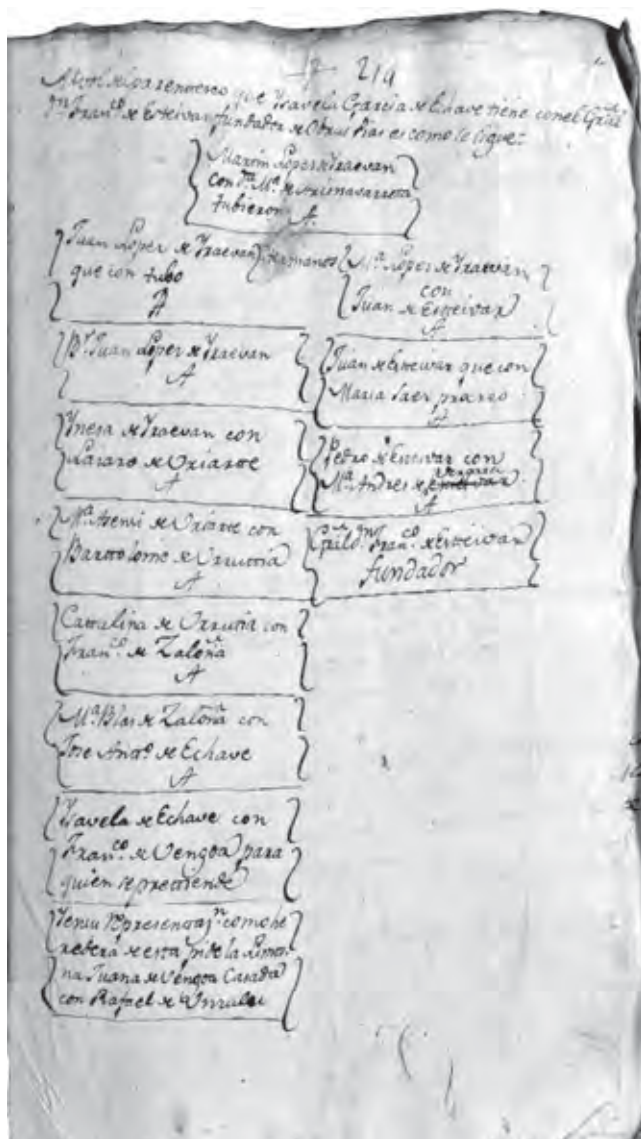 219
que Ysavela Garcia de Echave tiene con el Gral
Dn Franco de Esteivar fundador de Obras Pias es como se sigue:
Martin Lopez de Yraevan
con Da Ma de
tubieron A.
Juan Lopez de Yraevan
que con tubo
A
Hermanos
Ma Lopez de Yraevan
con
Juan de Esteivar
A
Br Juan Lopez de Yraevan
A
Juan de Esteivar que con
Maria Saez procreo
A
Ynesa de Yraevan con
Lazaro de Uriarte
A
Pedro de Esteivar con
Ma Andres de Vergara
A
Ma Asensi de Uriarte con
Barttolome de Urruttia
A
Gral Dn Franco de Esteivar
fundador
Cattalina de Urruttia con
Franco de Zaloña
A
Ma Blas de Zaloña con
Jose Anto de Echave
A
Ysavela de Echave con
Franco de Vengoa para
quien se prettende
representazn como he
redera de esta pide la Limos
na Juana de Vengoa Casada
con Rafael de